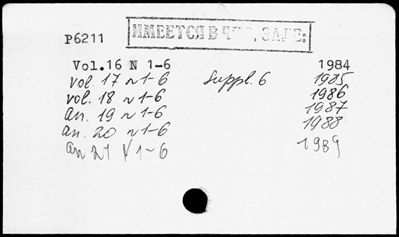 ИМЕЕТСЯ В ЗАЛЕ:
P6211
Vol.16 N 1-6 1984
vol. 17 N 1-6 Suppl. 6 1985
vol. 18 N 1-6 1986
an. 19 N 1-6 1987
an. 20 N 1-6 1988
an 21 N 1-6 1989